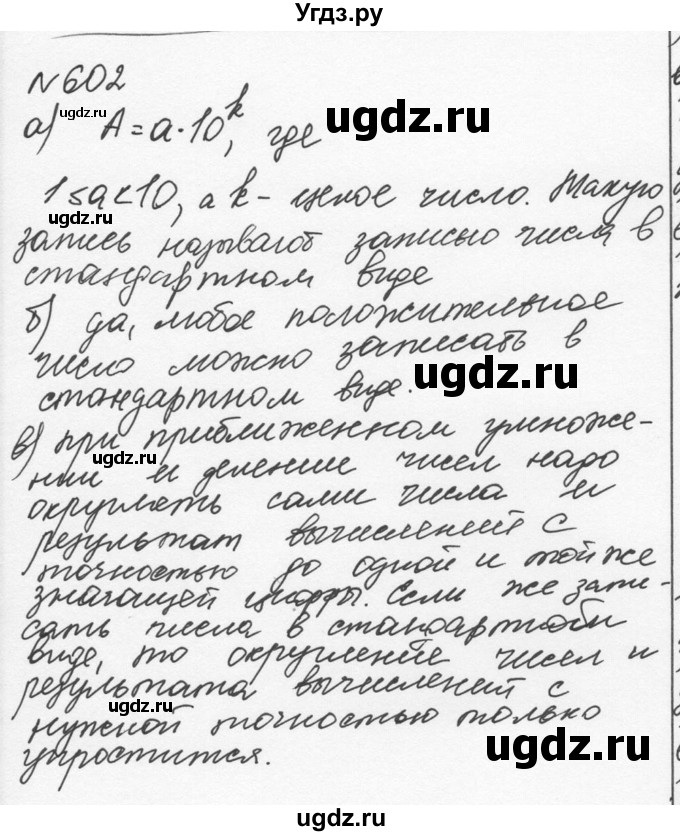 Угдз.ру
№602
а) A = a · 10^k, где
1 ≤ a < 10, а k - целое число. Такую
запись называют записью числа в
стандартном виде
б) да, любое положительное
число можно записать в
стандартном виде.
в) при приближенном умноже-
нии и делении чисел надо
округлять сами числа и
результат вычислений с
точностью до одной и той же
значащей цифры. Если же запи-
сать числа в стандартном
виде, то округление чисел и
результата вычислений с
нужной точностью только
упростится.
ugdz.ru
ugdz.ru
ugdz.ru
ugdz.ru
ugdz.ru
ugdz.ru
ugdz.ru
ugdz.ru